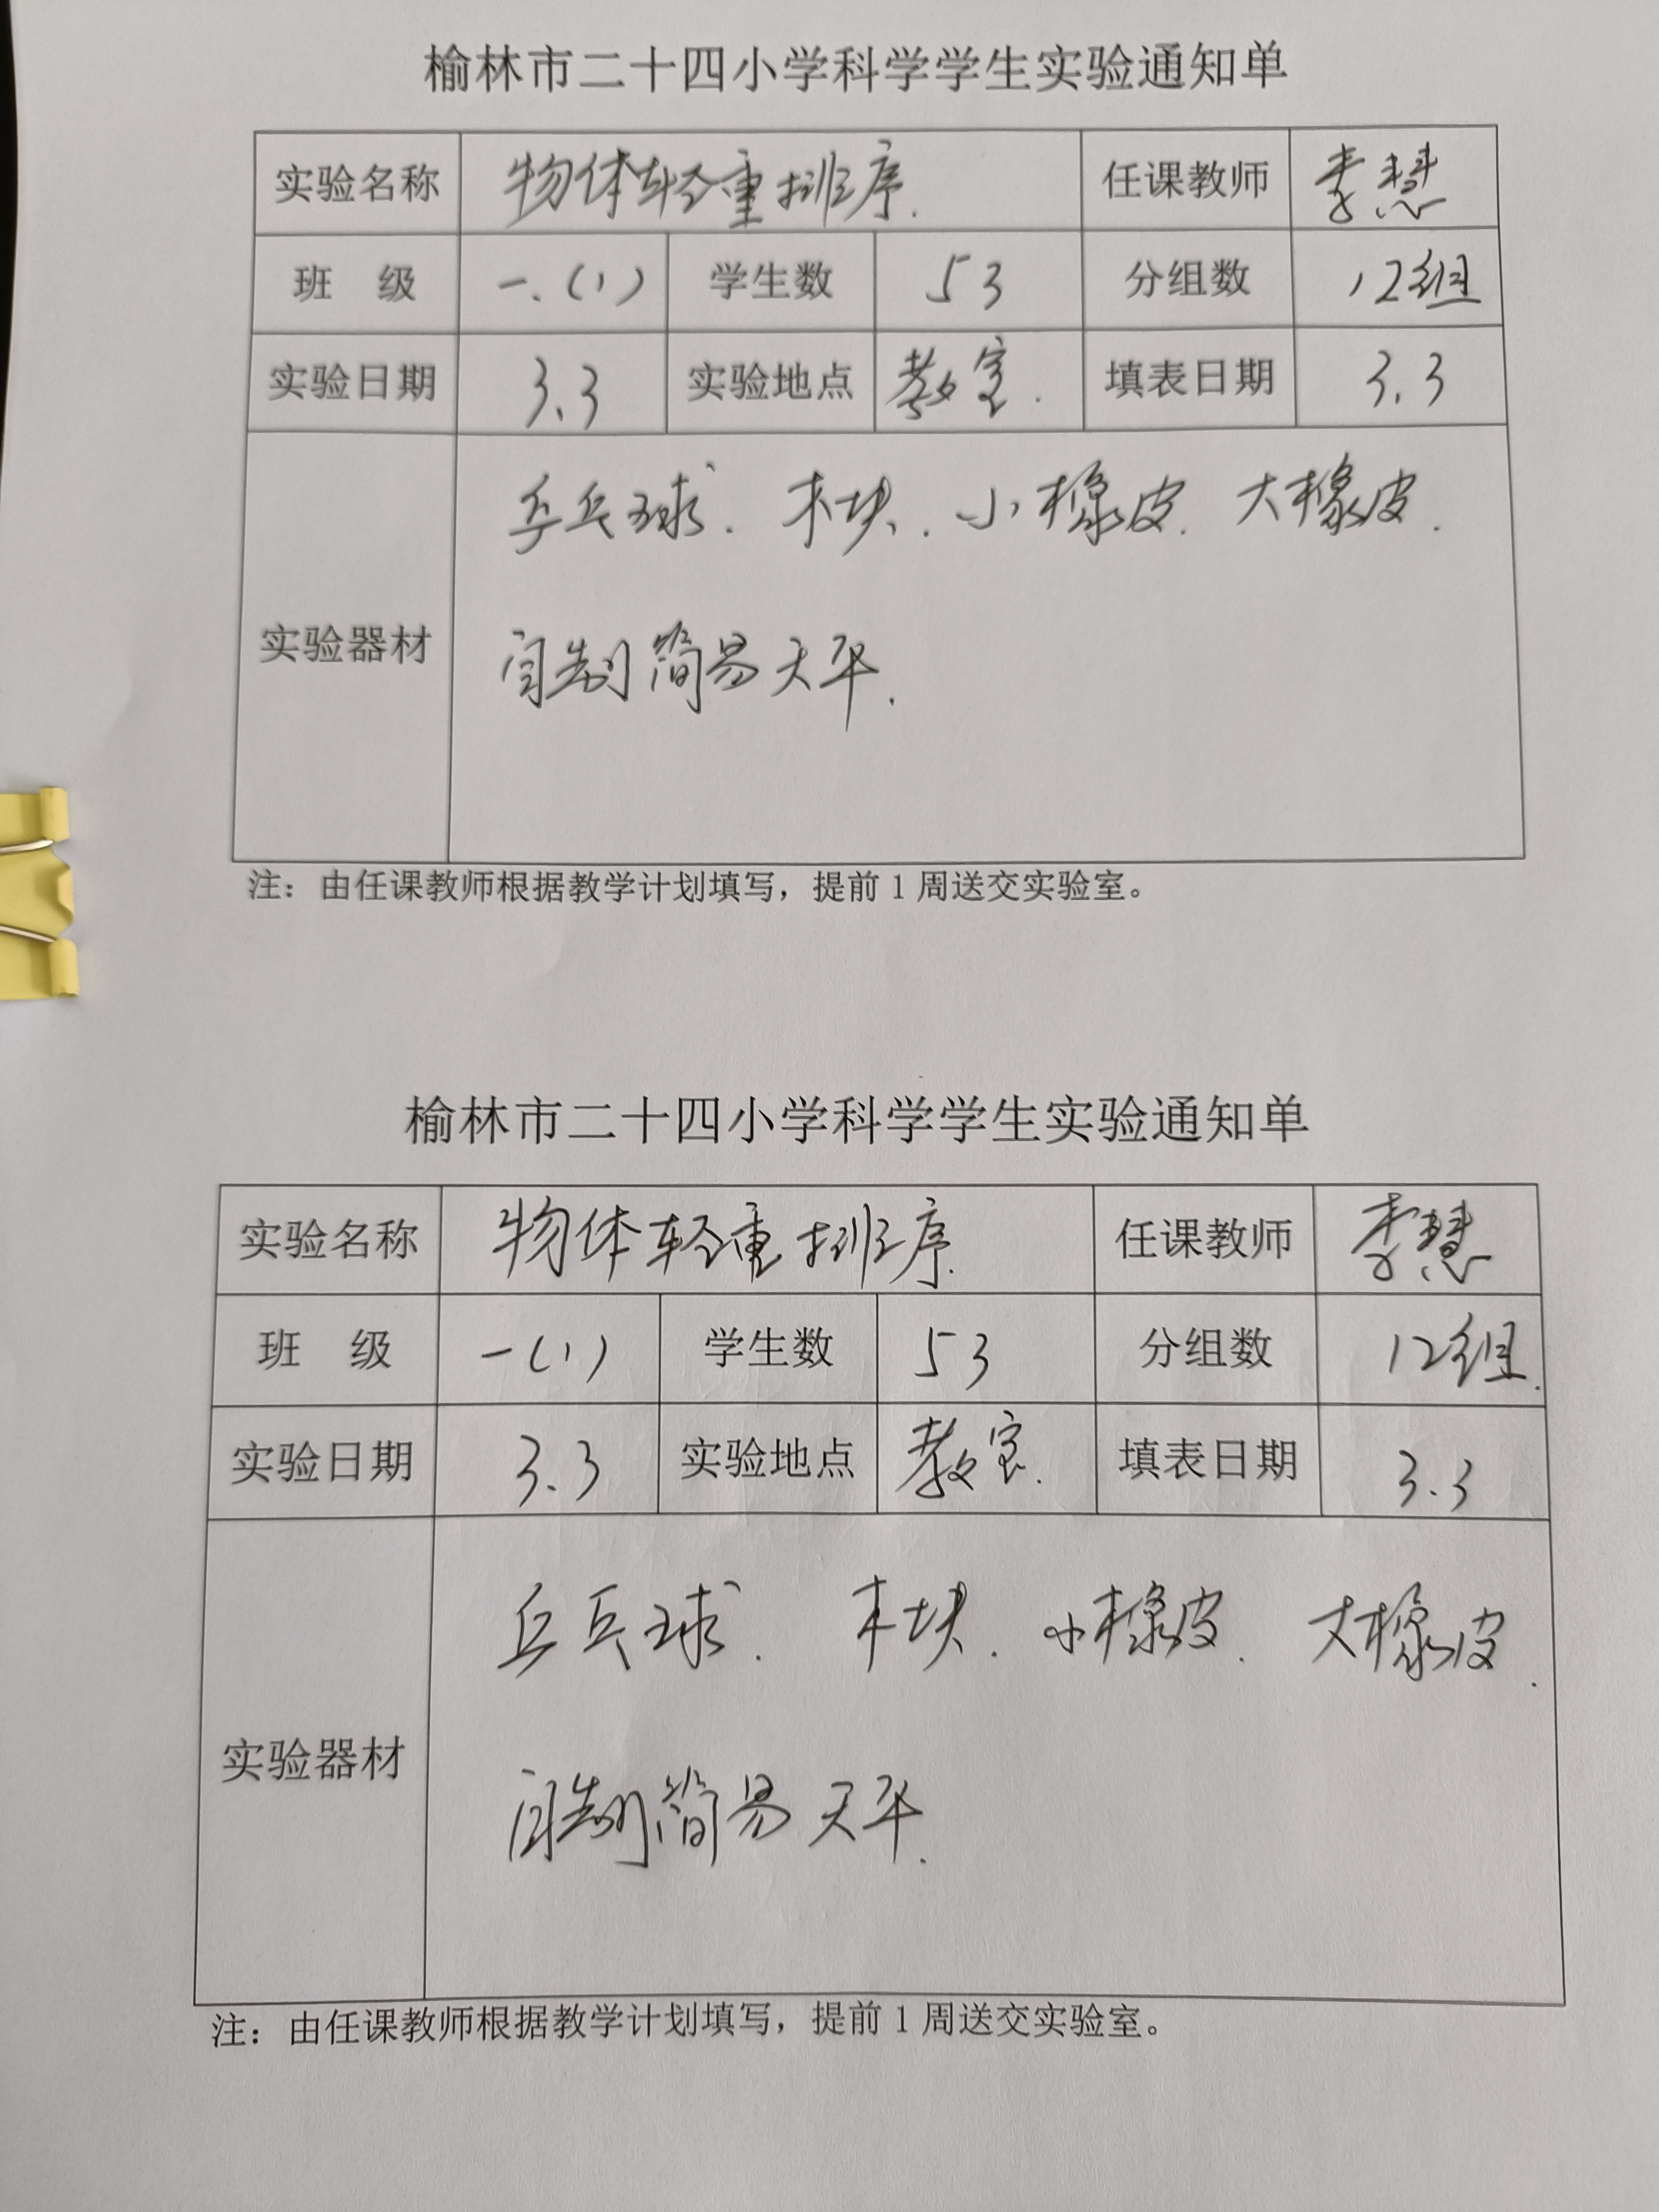 榆林市二十四小学科学学生实验通知单
实验名称 物体轻重排序. 任课教师 李慧
班 级 一.(1) 学生数 53 分组数 12组
实验日期 3.3 实验地点 教室. 填表日期 3.3
乒乓球. 木块. 小橡皮. 大橡皮.
实验器材
自制简易天平.
注：由任课教师根据教学计划填写，提前1周送交实验室。
榆林市二十四小学科学学生实验通知单
实验名称 物体轻重排序. 任课教师 李慧
班 级 一(1) 学生数 53 分组数 12组.
实验日期 3.3 实验地点 教室. 填表日期 3.3
乒乓球. 木块. 小橡皮. 大橡皮.
实验器材
自制简易天平.
注：由任课教师根据教学计划填写，提前1周送交实验室。